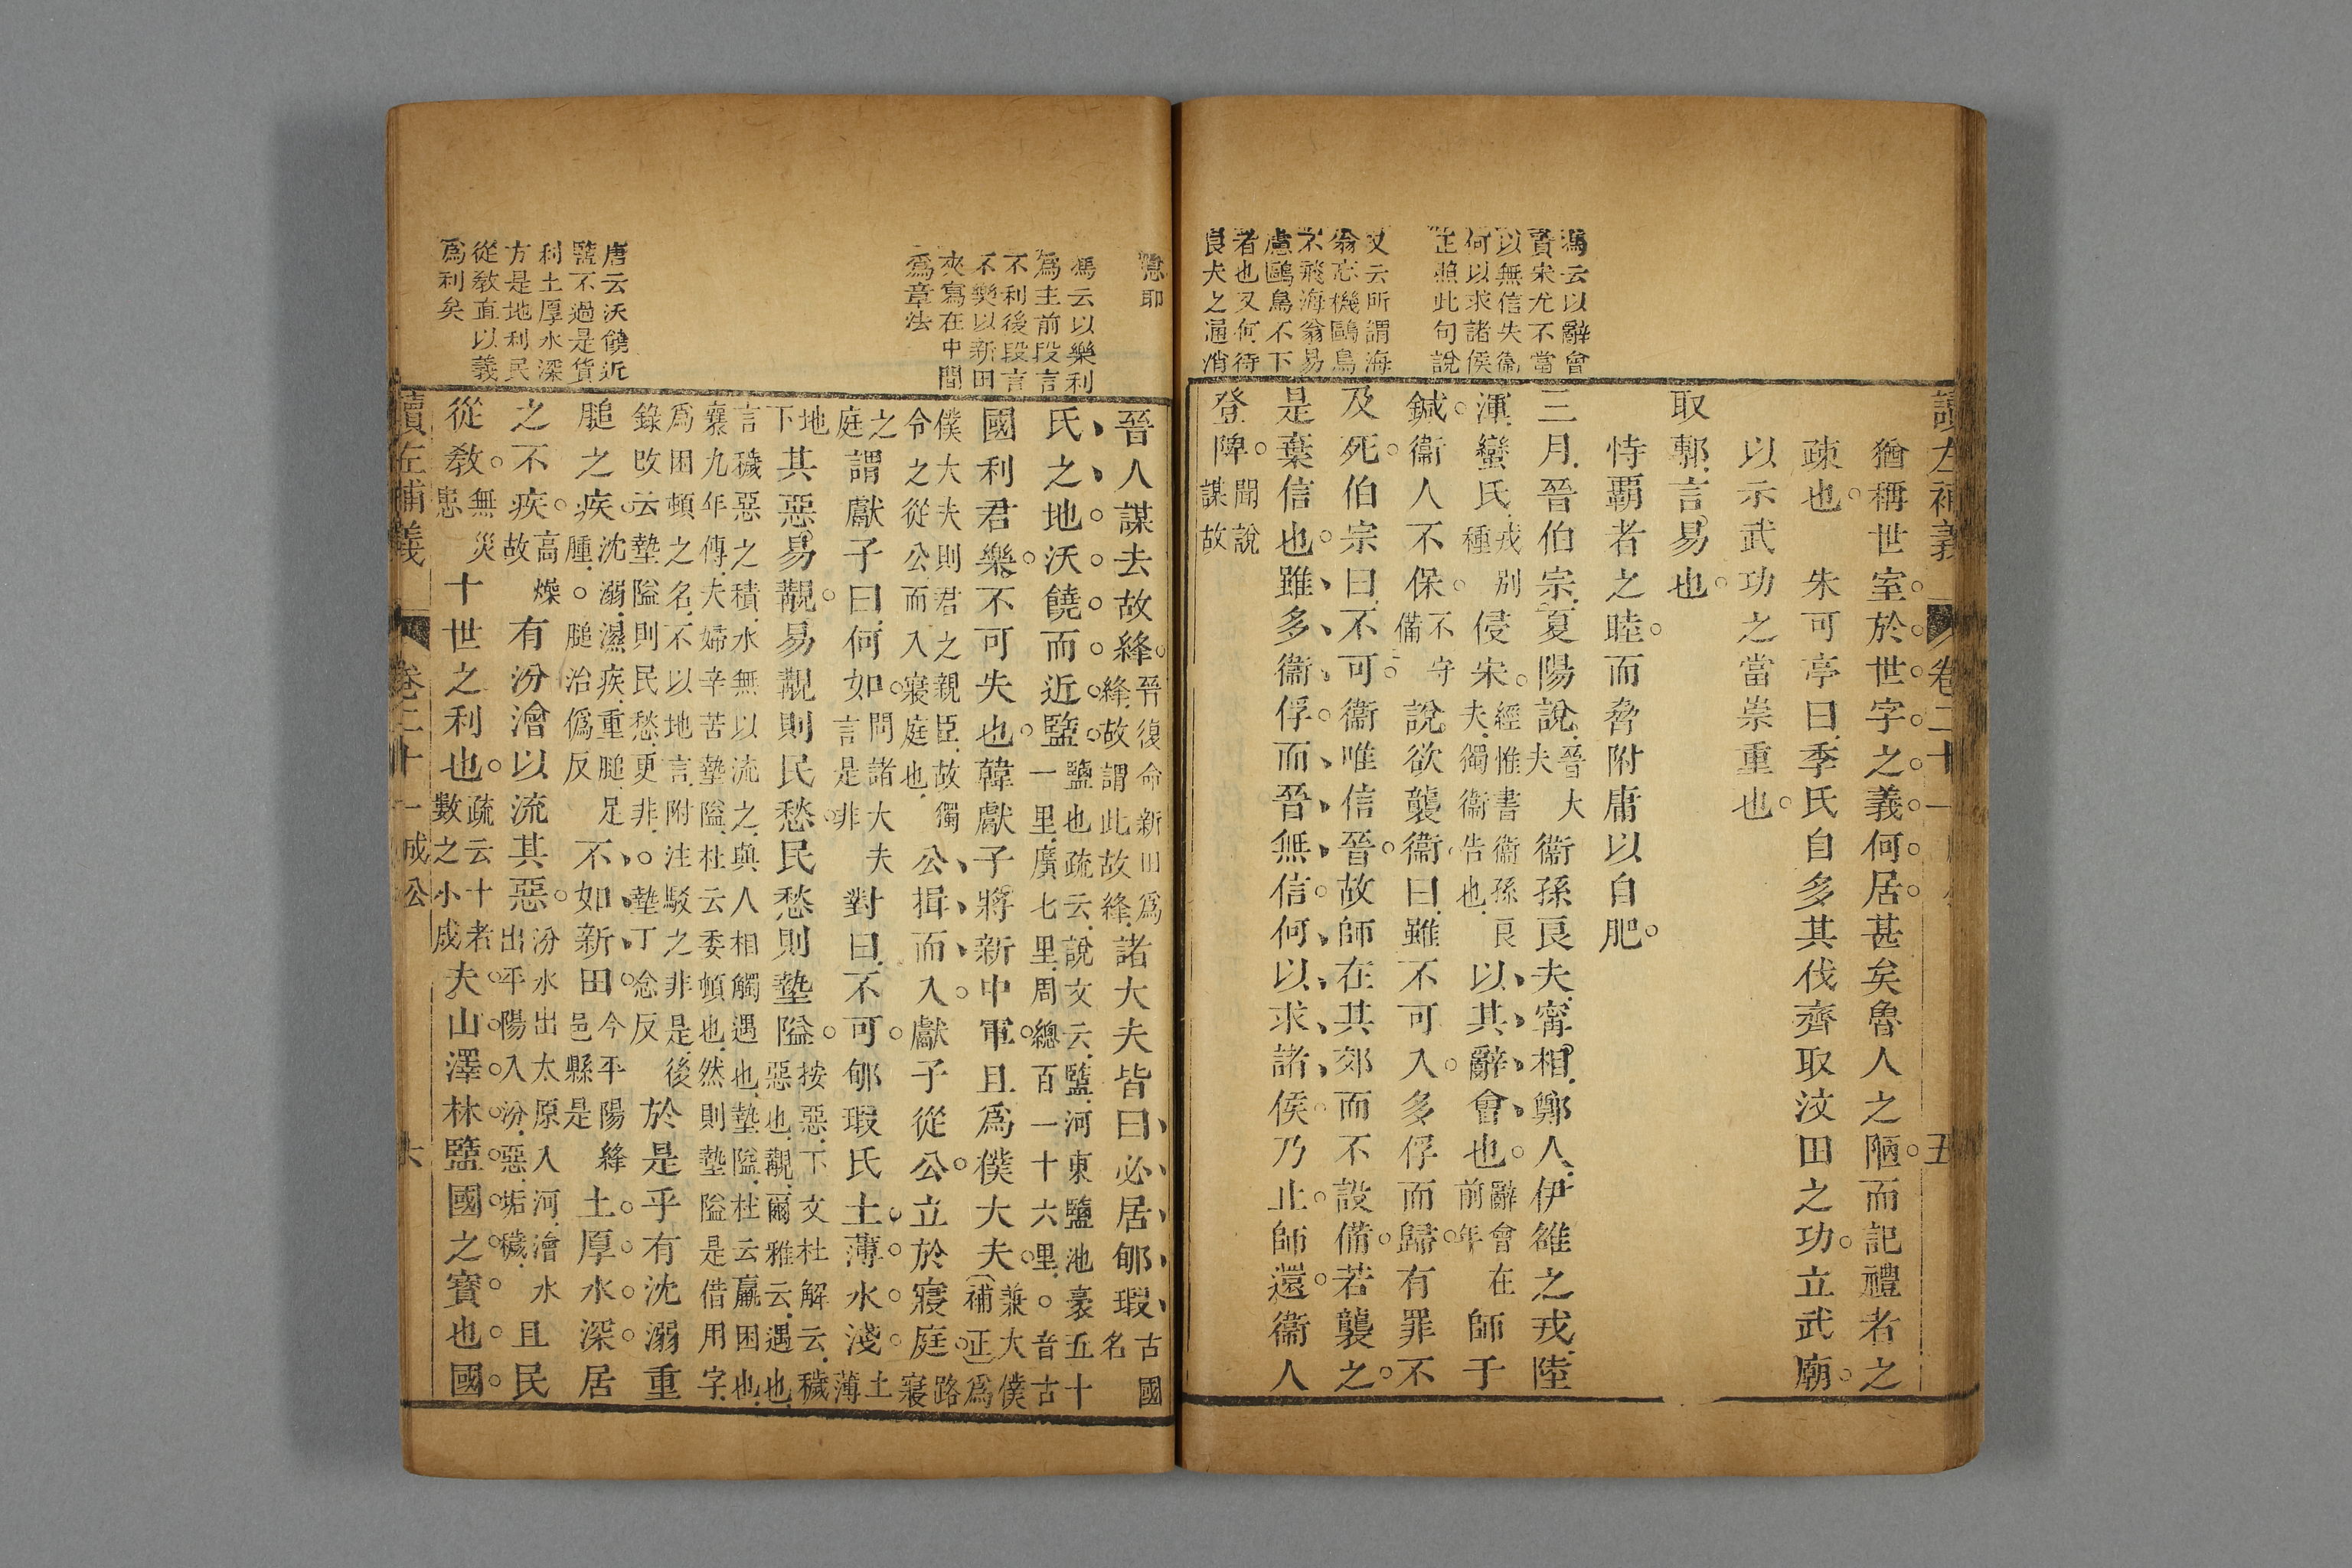 馮云以辭會
責宋尤不當
以無信失衞
何以求諸侯
正照此句說
又云所謂海
翁忘機鷗鳥
不飛海翁易
慮鷗鳥不下
者也又何待
良夫之通消
讀左補義 卷二十一 五
猶稱世室於世字之義何居甚矣魯人之陋而記禮者之
疎也 朱可亭曰季氏自多其伐齊取汶田之功立武廟
以示武功之當崇重也
取鄟言易也
恃覇者之睦而脅附庸以自肥
三月晉伯宗夏陽說晉大夫衞孫良夫甯相鄭人伊雒之戎陸
渾蠻氏戎別種侵宋經惟書衞孫良夫獨衞告也以其辭會也辭會在前年師于
鍼衞人不保不守備說欲襲衞曰雖不可入多俘而歸有罪不
及死伯宗曰不可衞唯信晉故師在其郊而不設備若襲之
是棄信也雖多衞俘而晉無信何以求諸侯乃止師還衞人
登陴聞說謀故
息耶
馮云以樂利
爲主前段言
不利後段言
不樂以新田
夾寫在中間
爲章法
唐云沃饒近
盬不過是貨
利土厚水深
方是地利民
從敎直以義
爲利矣
晉人謀去故絳晉復命新田爲絳故謂此故絳諸大夫皆曰必居郇瑕古國名
氏之地沃饒而近盬鹽也疏云說文云盬河東鹽池袤五十一里廣七里周總百一十六里○音古
國利君樂不可失也韓獻子將新中軍且爲僕大夫(補正)兼大僕爲
僕大夫則君之親臣故獨令之從公而入寢庭也公揖而入獻子從公立於寢庭路寢
之庭謂獻子曰何如問諸大夫言是非對曰不可郇瑕氏土薄水淺土薄
地下其惡易覯易覯則民愁民愁則墊隘按惡下文杜解云穢惡也覯爾雅云遇也
言穢惡之積水無以流之與人相觸遇也墊隘杜云羸困也襄九年傳夫婦辛苦墊隘杜云委頓也然則墊隘是借用字
爲困頓之名不以地言附注駁之非是後錄攺云墊隘則民愁更非○墊丁念反於是乎有沈溺重
膇之疾沈溺濕疾重膇足腫○膇治僞反不如新田今平陽絳邑縣是土厚水深居
之不疾高燥故有汾澮以流其惡汾水出太原入河澮水出平陽入汾惡垢穢且民
從敎無災患十世之利也疏云十者數之小成夫山澤林盬國之寶也國
讀左補義 卷二十一 成公 六